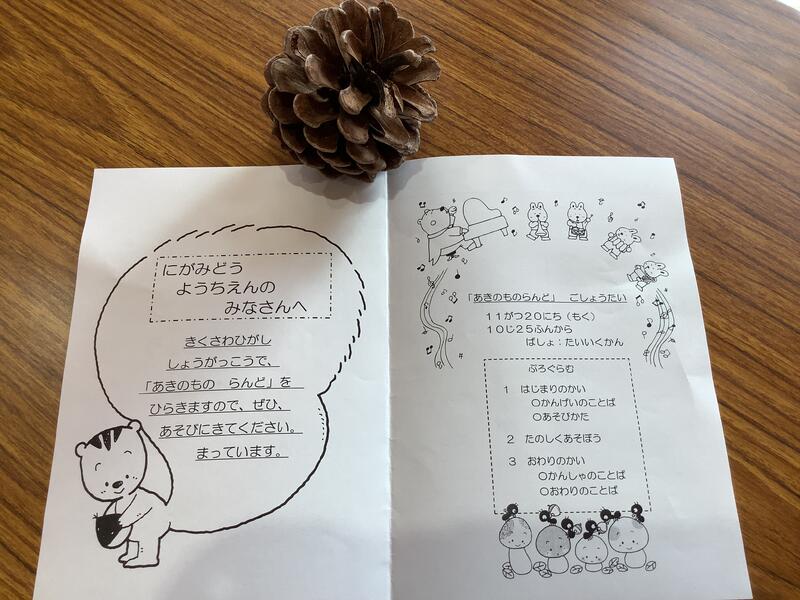 にがみどう
ようちえんの
みなさんへ
きくさわひがし
しょうがっこうで、
「あきのもの らんど」を
ひらきますので、ぜひ、
あそびにきてください。
まっています。
「あきのものらんど」 ごしょうたい
11がつ20にち(もく)
10じ25ふんから
ばしょ:たいいくかん
ぷろぐらむ
1 はじまりのかい
○かんげいのことば
○あそびかた
2 たのしくあそぼう
3 おわりのかい
○かんしゃのことば
○おわりのことば